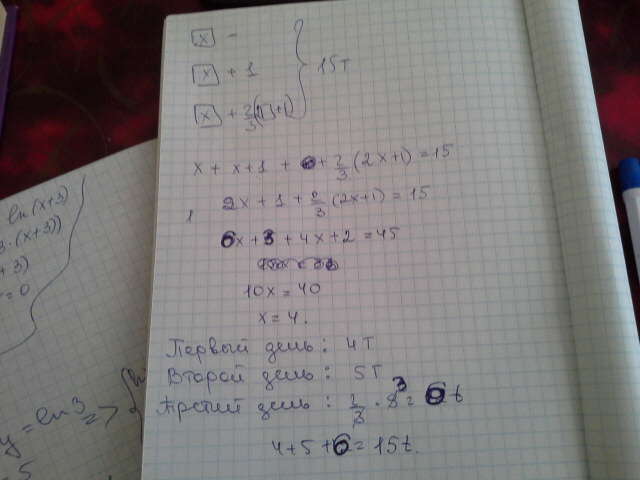 x -
x + 1
x + 2/3 ( +1)
15т
x + x+1 + 2/3 (2x+1) = 15
2x + 1 + 2/3 (2x+1) = 15
6x + 3 + 4x + 2 = 45
10x = 40
x = 4.
Первый день : 4т
Второй день : 5т
Третий день : 2/3 · 3 = 6t
4+5+6 = 15t.
ln(x+3)
(x+3))
+3)
= 0
y = ln3 =>
= 5